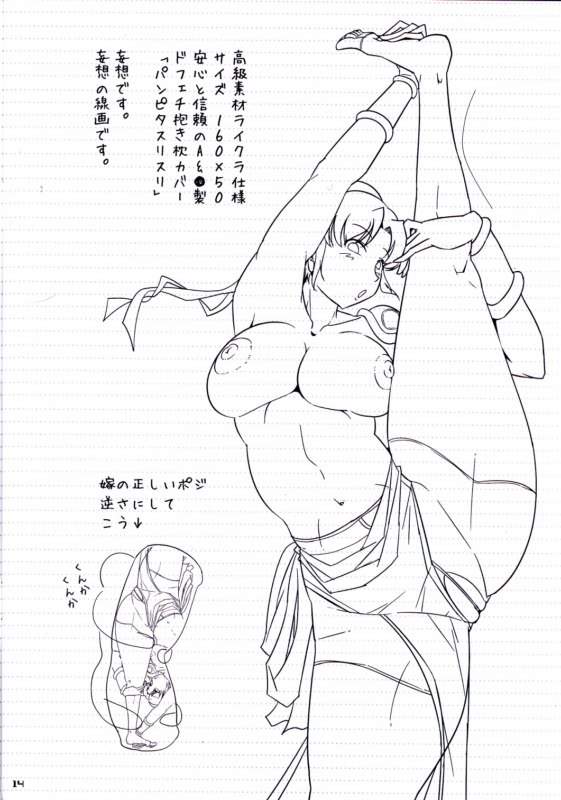 高級素材ライクラ仕様
サイズ160×50
安心と信頼のA&●製
ドフェチ抱き枕カバー
「パンピタスリスリ」
妄想です。
妄想の線画です。
嫁の正しいポジ
逆さにして
こう↓
くんか
くんか
14